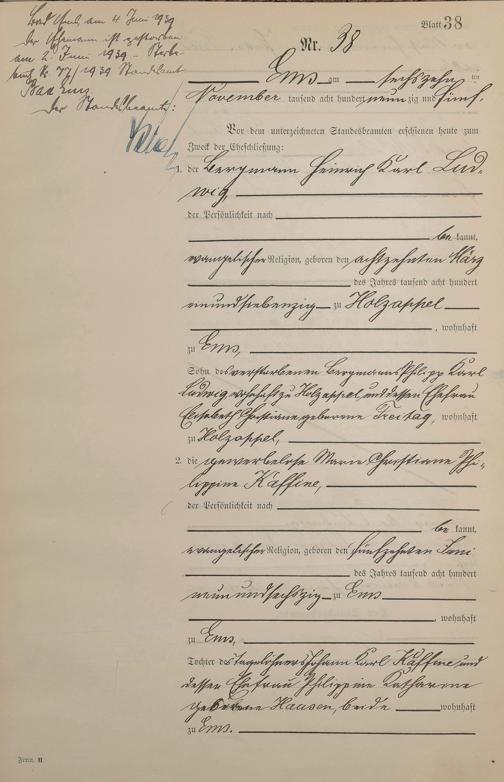 Bad Ems, am 4. Juni 1939
Der Ehemann ist gestorben
am 2. Juni 1939 - Sterbe-
buch Nr. 77/1939 Standesamt
Bad Ems
Der Standesbeamte:
Blatt 38
Nr. 38
Ems am sechszehn ten
November tausend acht hundert neunzig und fünf.
Vor dem unterzeichneten Standesbeamten erschienen heute zum
Zweck der Eheschließung:
1. der Bergmann Heinrich Karl Lud-
wig,
der Persönlichkeit nach
be kannt,
evangelischer Religion, geboren den achtzehnten März
des Jahres tausend acht hundert
neunundsiebenzig zu Holzappel
, wohnhaft
zu Ems,
Sohn des verstorbenen Bergmanns Philipp Karl
Ludwig, wohnhaft zu Holzappel, und dessen Ehefrau
Elisabeth Christiane geborene Freitag, wohnhaft
zu Holzappel,
2. die gewerbelose Marie Christiane Phi-
lippine Kaffine,
der Persönlichkeit nach
be kannt,
evangelischer Religion, geboren den fünfzehnten Juni
des Jahres tausend acht hundert
neun undsechszig zu Ems
, wohnhaft
zu Ems,
Tochter des Tagelöhners Johann Karl Kaffine und
dessen Ehefrau Philippine Katharine
geborene Hausen, beide wohnhaft
zu Ems.
Form. II